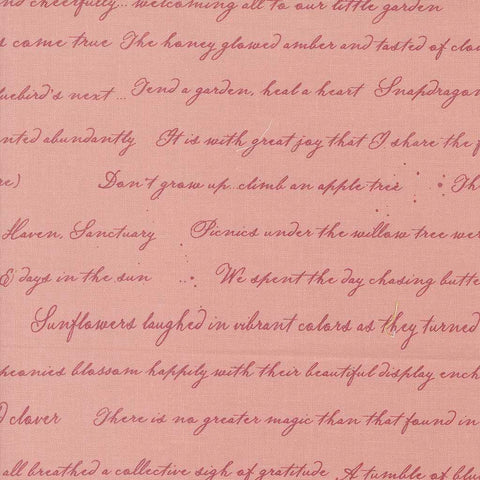 nd cheerfully... welcoming all to our little garden
s come true The honey glowed amber and tasted of clov
uebird's next... Tend a garden, heal a heart Snapdragon
nted abundantly It is with great joy that I share the f
re) Don't grow up...climb an apple tree Th
Haven, Sanctuary Picnics under the willow tree wer
& days in the sun ... We spent the day chasing butte
Sunflowers laughed in vibrant colors as they turned
peonies blossom happily with their beautiful display ench
d clover There is no greater magic than that found in
all breathed a collective sigh of gratitude A tumble of blu